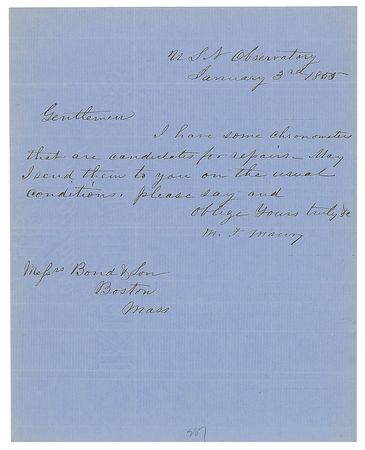 U S N Observatory
January 3rd 1855
Gentlemen
I have some chronometers
that are candidates for repairs - May
I send them to you on the usual
conditions. please say and
Oblige Yours truly &c
M. F. Maury
Messrs Bond & Son
Boston
Mass
387